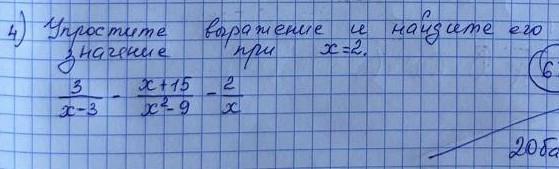 4) Упростите выражение и найдите его
значение при x=2.
3/(x-3) - (x+15)/(x²-9) - 2/x
6
20ба